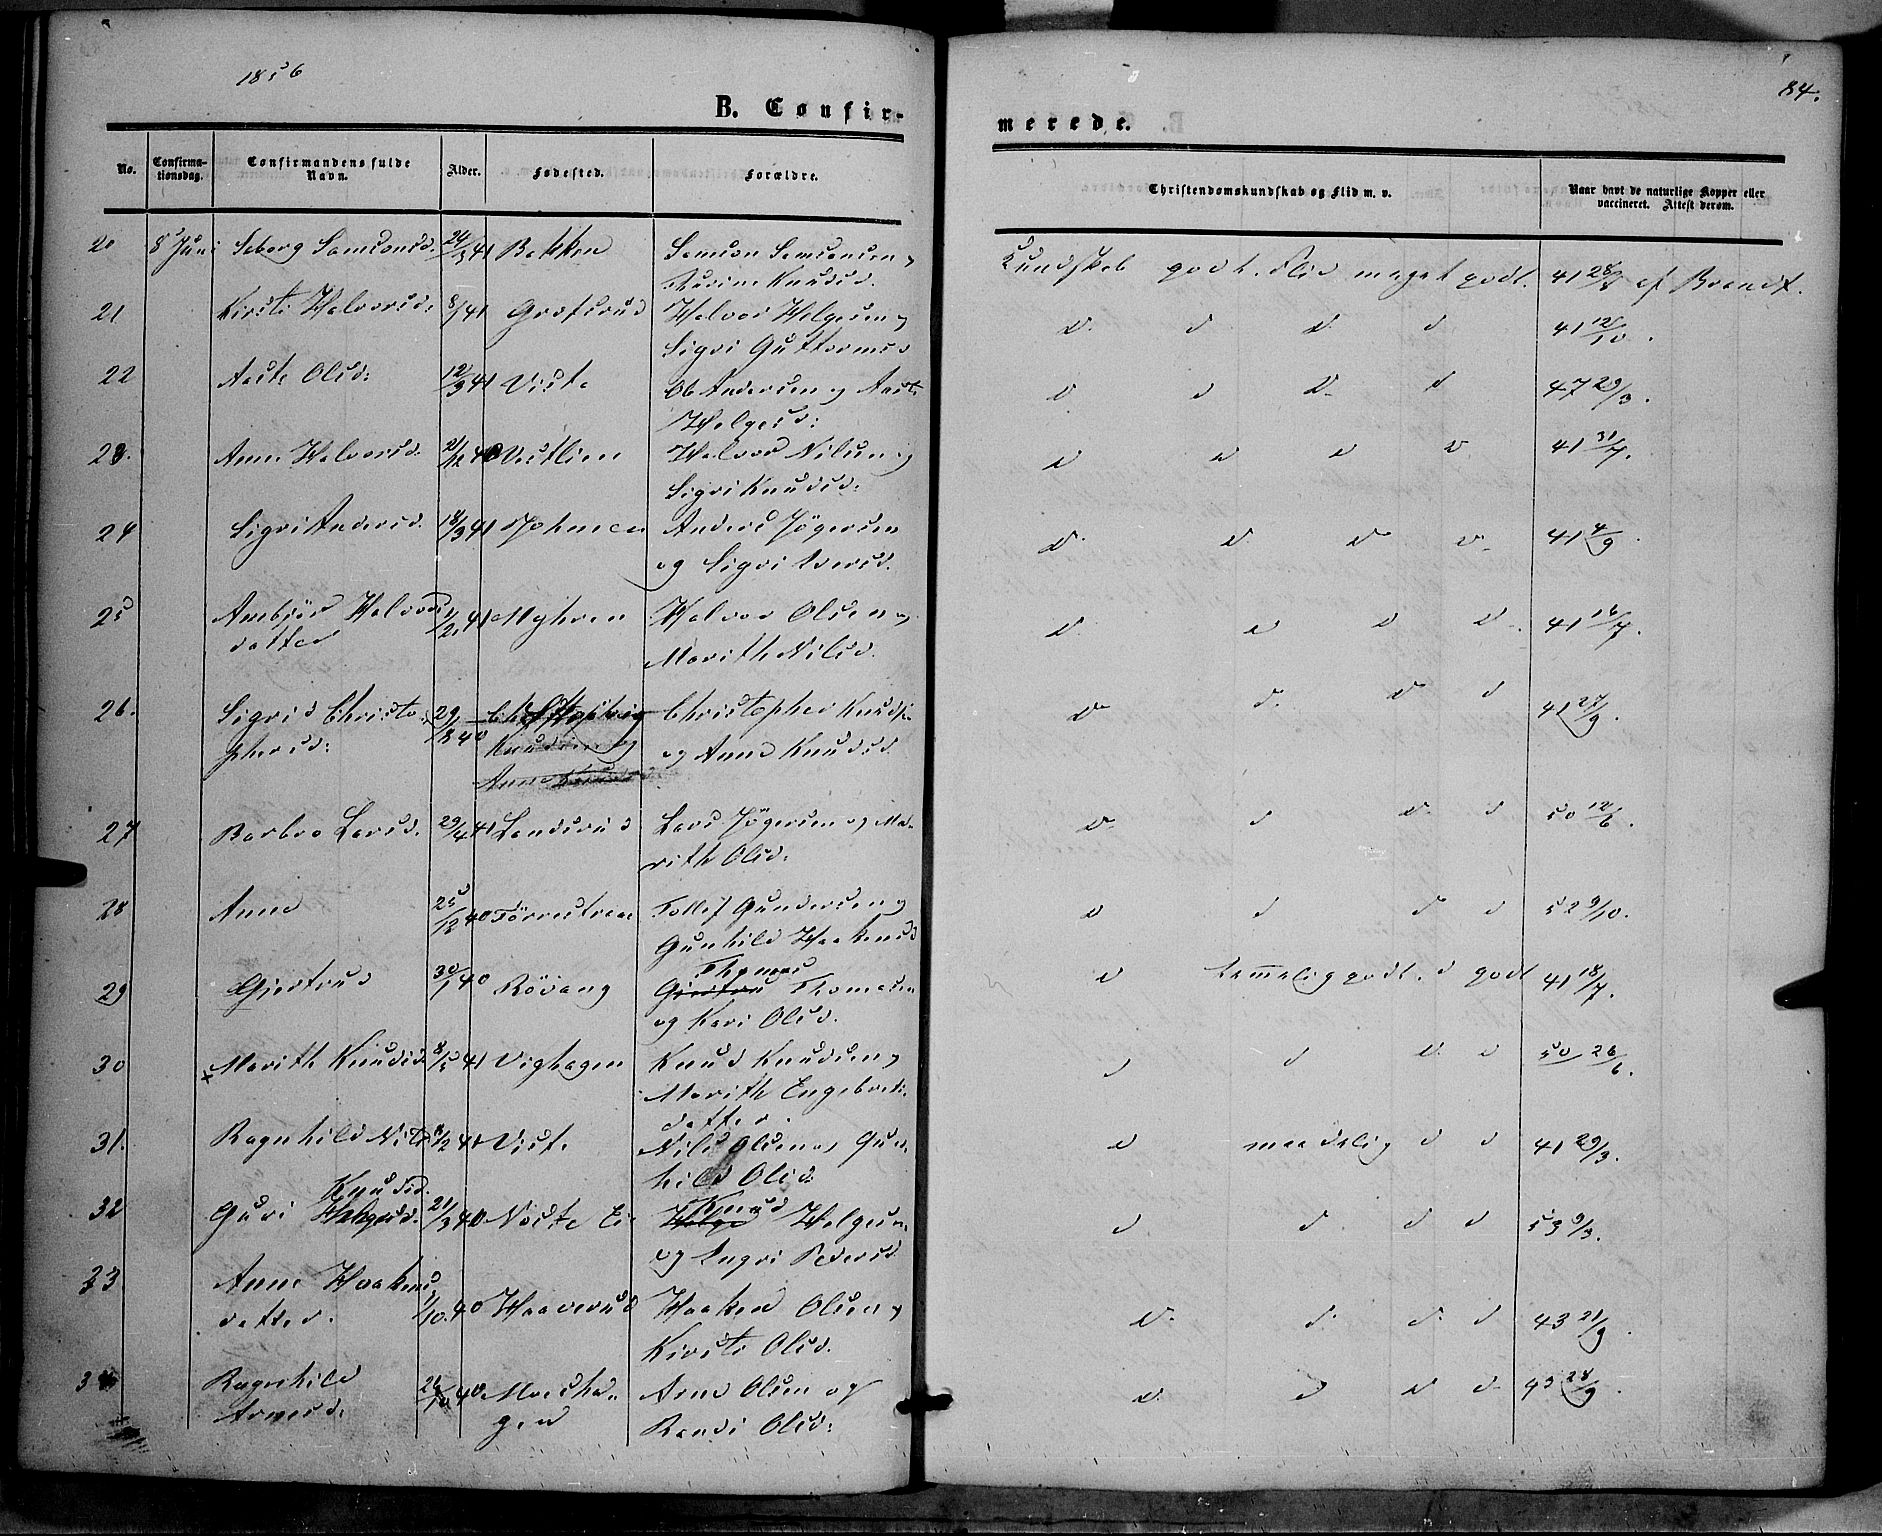 1856
84.
B. Confir-
merede.
No.
Confirma-
tionsdag.
Confirmandens fulde
Navn.
Alder.
Fødested.
Forældre.
Christendomskundskab og Flid m. v.
Naar havt de naturlige Kopper eller
vaccineret. Attest derom.
20 8 Juni Seborg Samsonsd. 41 Bakken Samson Samsonsen og
Knudsd.
Kundskab godt. Flid meget godt. 41 28/8 af Brandt.
21 Kirsti Halvorsd: 41 Grøfsrud Halvor Helgesen og
Sigri Guttormsd
d. d d. d 41 12/10.
22 Aaste Olsd: 12/9 41 Viste Ole Andersen og Aaste
Helgesd:
d d d. d 47 29/3.
23. Anne Halvorsd. 21/12 40 Vestlien Halvor Nilsen og
Sigri Knudsd.
d d d d 41 31/7.
24 Sigri Andersd. 18/3 41 Anders Jögersen
og Sigri Iversd.
d. d. d d. 41 4/9.
25 Halvors
datter 41 Myhren Halvor Olsen og
Marith Nilsd.
d. d d d. 41 16/7.
26. Sigrid Christo-
phersd: 29/12 40 Christopher
Knudsen og
Anne Knudsd
Christopher Knudsen
og Anne Knudsd.
d d. d d 41 27/9.
27 Barbro Larsd. 29/4 41 Landsrud Lars Jögersen og Ma-
rith Olsd:
d. d d. d 50 12/6.
28 Anne 25/12 40 Tollef Gundersen og
Gunhild Haakensd
d d d d 52 9/10.
29 Gjertrud 30/1 40 Rövang Thomas
Gjertru Thomasen
og Kari Olsd.
d temmelig godt. d godt 41 18/7.
30 Marith Knudsd. 8/5 41 Vighagen Knud Knudsen og
Marith Engebrets-
datter.
d d d. d 50 26/6.
31. Ragnhild Nilsd 41 Viste Nils Olsen og Gun-
hild Olsd
d maadelig d d 41 29/3.
32 Knudsd.
Guri Helgesd. 21/3 40 Knud
Helge Helgesen
og Ingri Pedersd
d d d d 53 9/3.
33 Anne Haakens
datter. 1/10. 40 Haaverud Haaken Olsen og
Kirsti Olsd.
d. d. d. d 43 21/9.
34 Ragnhild
Arnesd. 40 Moesha-
gen Arne Olsen og
Randi Olsd:
d. d d d. 28/9.